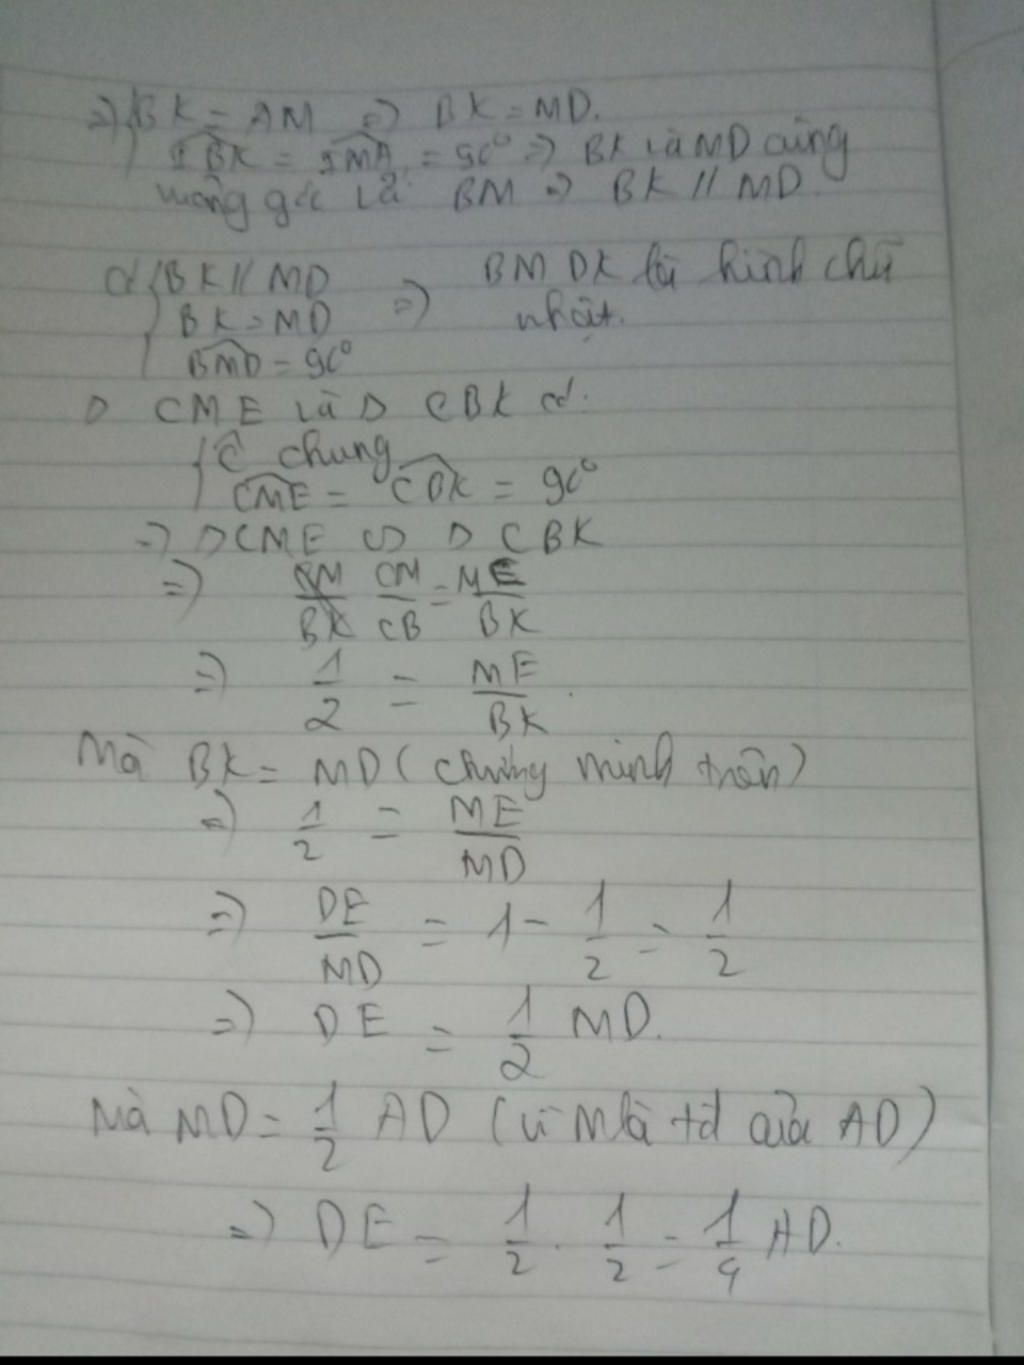 => { BK = AM => BK = MD.
IBK = IMA = 90° => BK và MD cùng
vuông góc với BM => BK // MD.
có { BK // MD => BMDK là hình chữ
BK = MD nhật.
BMD = 90°
Δ CME và Δ CBK có:
{ Ĉ chung
CME = CBK = 90°
=> Δ CME ∽ Δ CBK
=> CM/CB = ME/BK
=> 1/2 = ME/BK.
Mà BK = MD (chứng minh trên)
=> 1/2 = ME/MD
=> DE/MD = 1 - 1/2 = 1/2
=> DE = 1/2 MD.
Mà MD = 1/2 AD (vì M là tđ của AD)
=> DE = 1/2 . 1/2 = 1/4 AD.